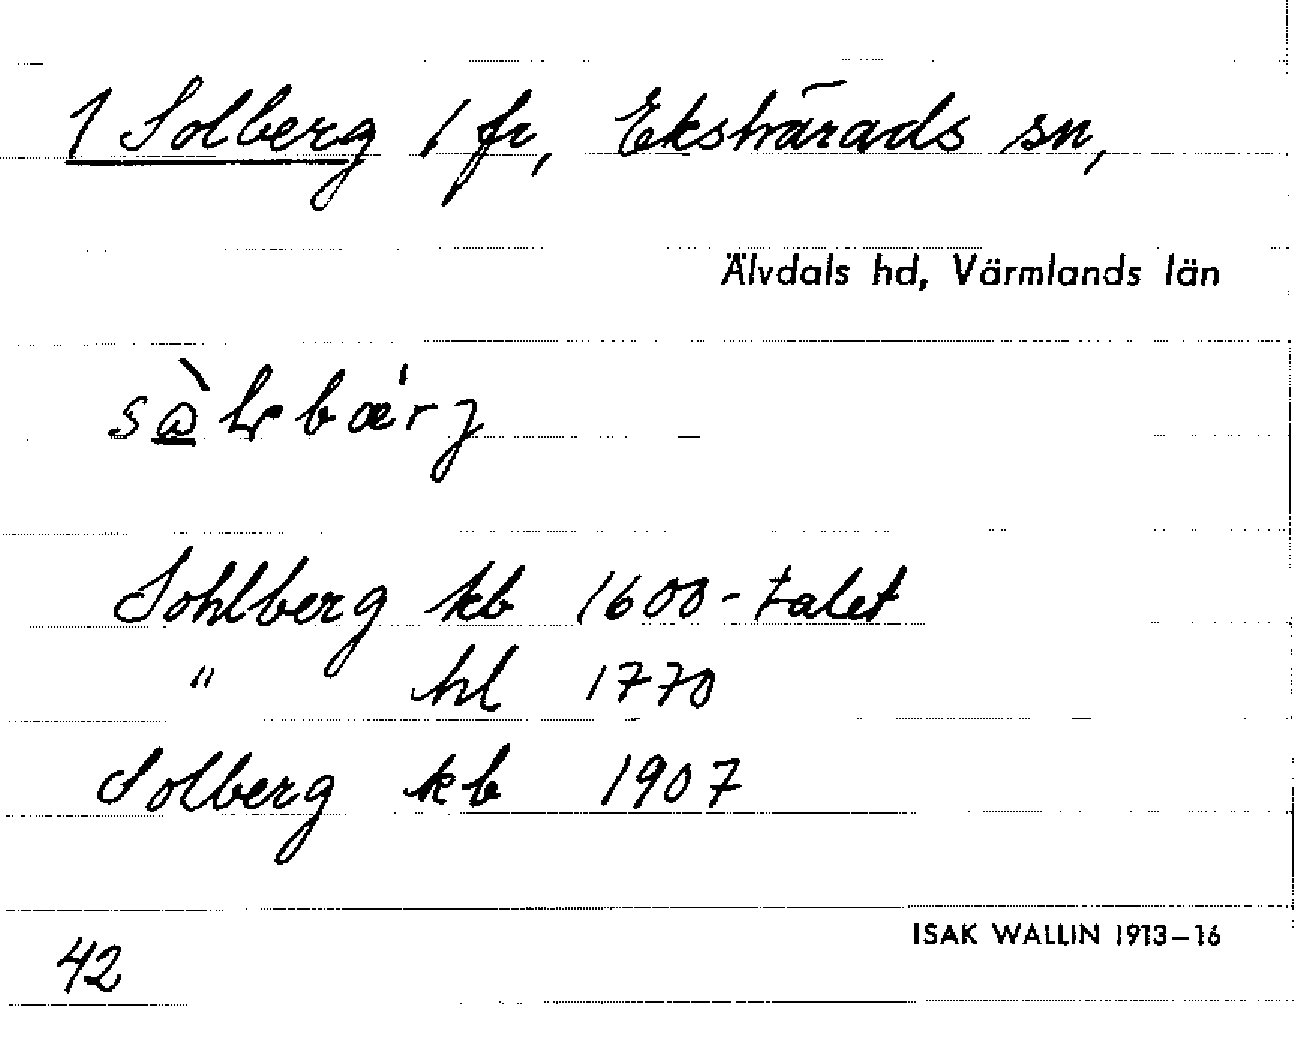 1 Solberg 1 fr, Ekshärads sn,
Älvdals hd, Värmlands län
Sohlberg kb 1600-talet
" hl 1770
Solberg kb 1907
ISAK WALLIN 1913–16
42